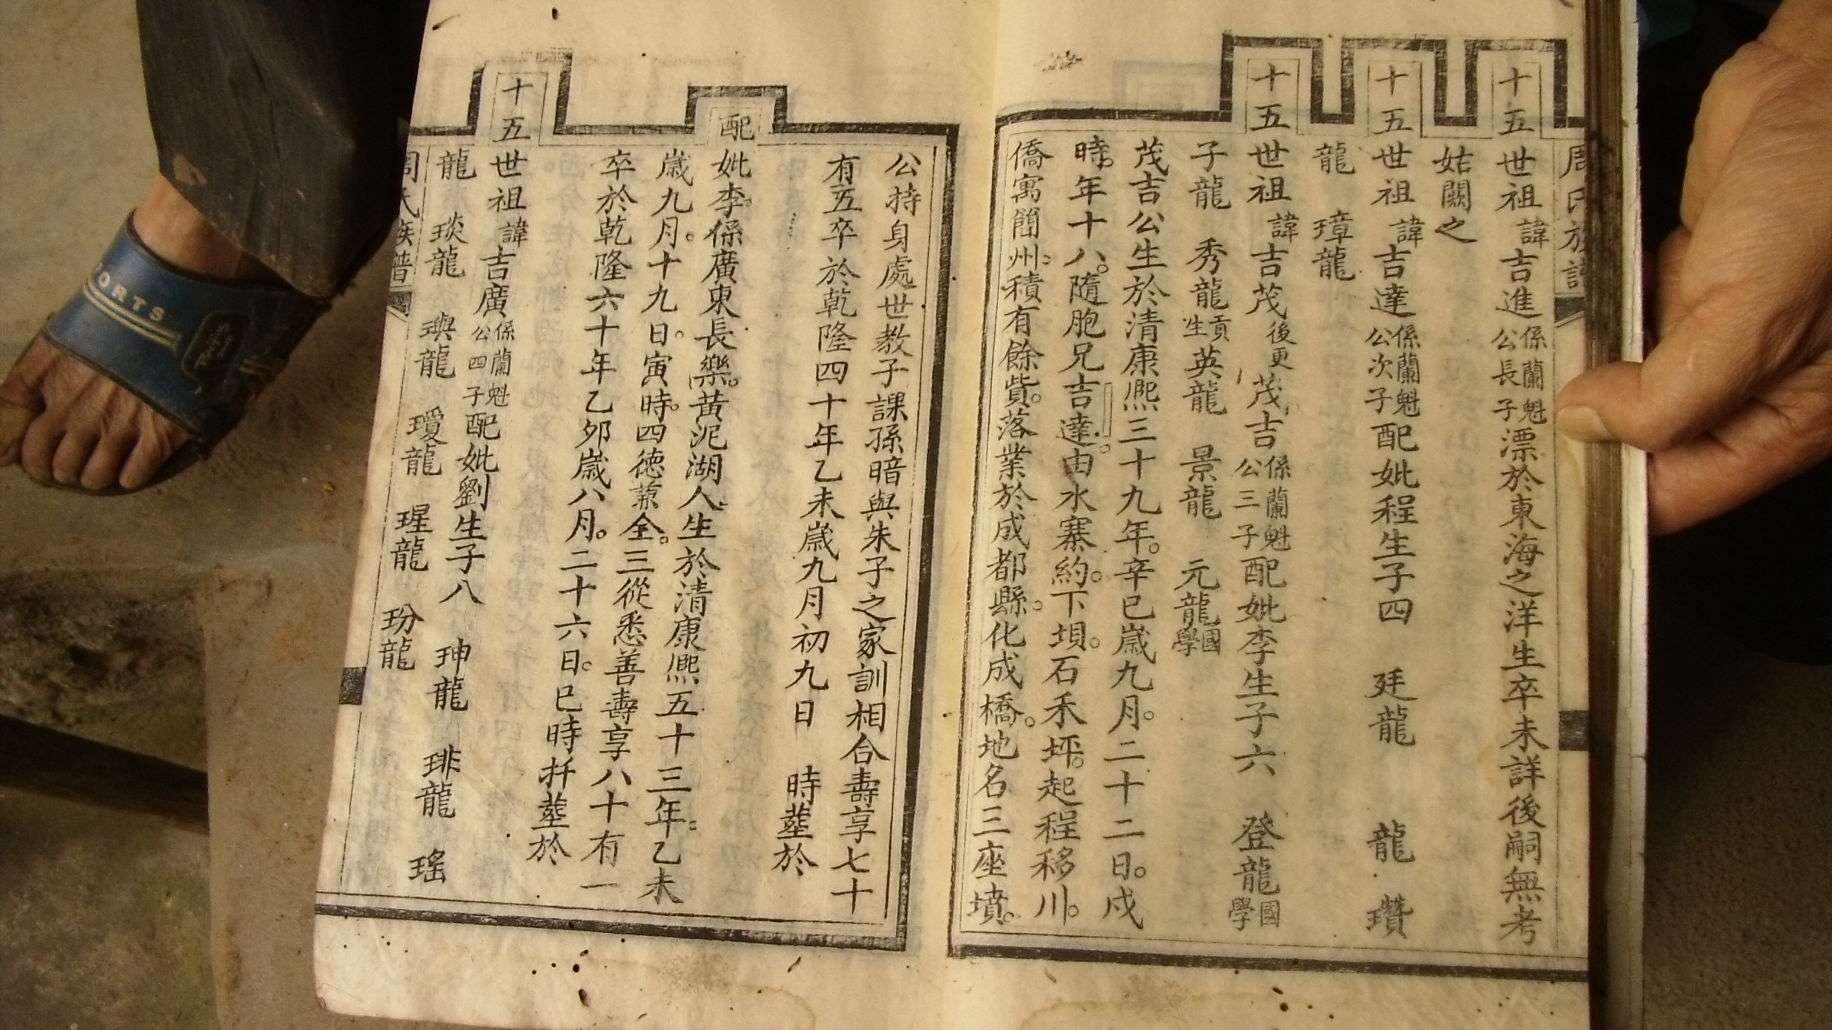 周氏族譜
十五世祖諱吉進係蘭魁公長子漂於東海之洋生卒未詳後嗣無考
姑闕之
十五世祖諱吉達係蘭魁公次子配妣程生子四 廷龍 龍 瓚
龍 璋龍
十五世祖諱吉茂後更茂吉係蘭魁公三子配妣李生子六 登龍國學
子龍 秀龍貢生 英龍 景龍 元龍國學
茂吉公生於清康熙三十九年辛巳歲九月二十二日戍
時年十八隨胞兄吉達由水寨約下埧石禾坪起程移川
僑寓簡州積有餘貲落業於成都縣化成橋地名三座墳
公持身處世教子課孫暗與朱子之家訓相合壽享七十
有五卒於乾隆四十年乙未歲九月初九日 時塟於
配妣李係廣東長樂黃泥湖人生於清康熙五十三年乙未
歲九月十九日寅時四德兼全三從悉善壽享八十有一
卒於乾隆六十年乙卯歲八月二十六日巳時扦塟於
十五世祖諱吉廣係蘭魁公四子配妣劉生子八 珅龍 琲龍 瑤
龍 琰龍 璵龍 璦龍 瑆龍 玢龍
周氏族譜
SPORTS